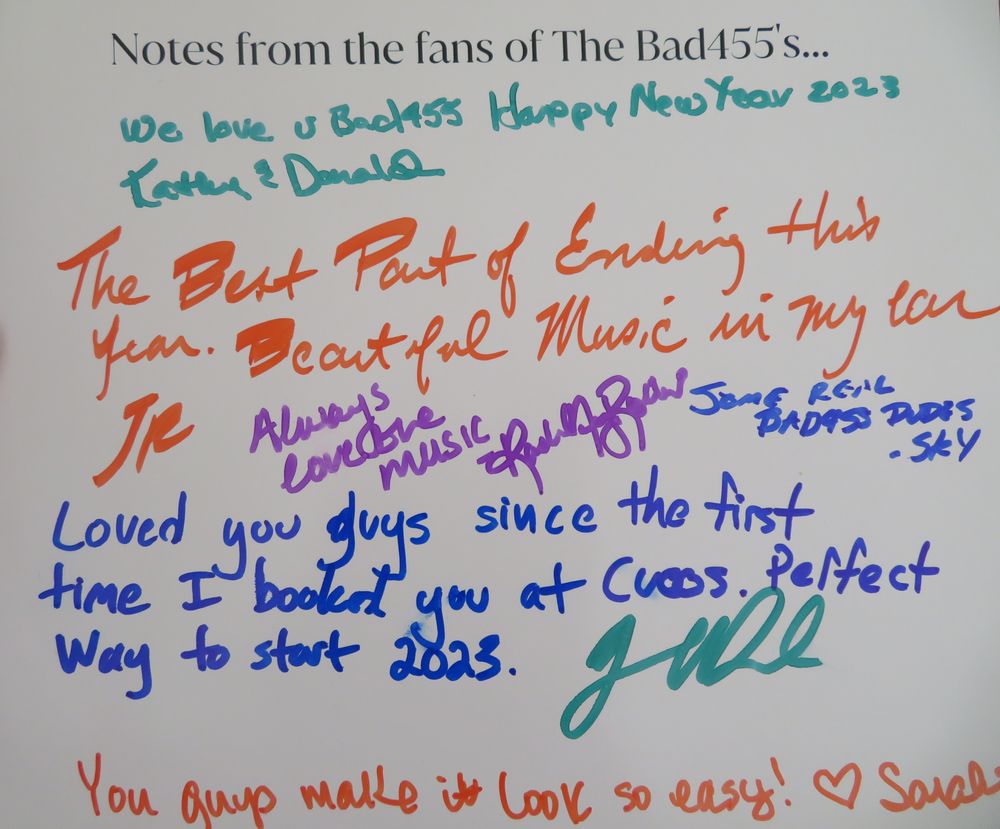 Notes from the fans of The Bad455's...
We love u Bad455 Happy New Year 2023
Kathy & Donald
The Best Part of Ending this
Year. Beautiful Music in my ear
JR
Always
love
music
Some REAL
BAD455 DUDES
- SKY
Loved you guys since the first
time I booked you at Cuoss. Perfect
Way to start 2023.
You guys make it look so easy! ♡ Sarah